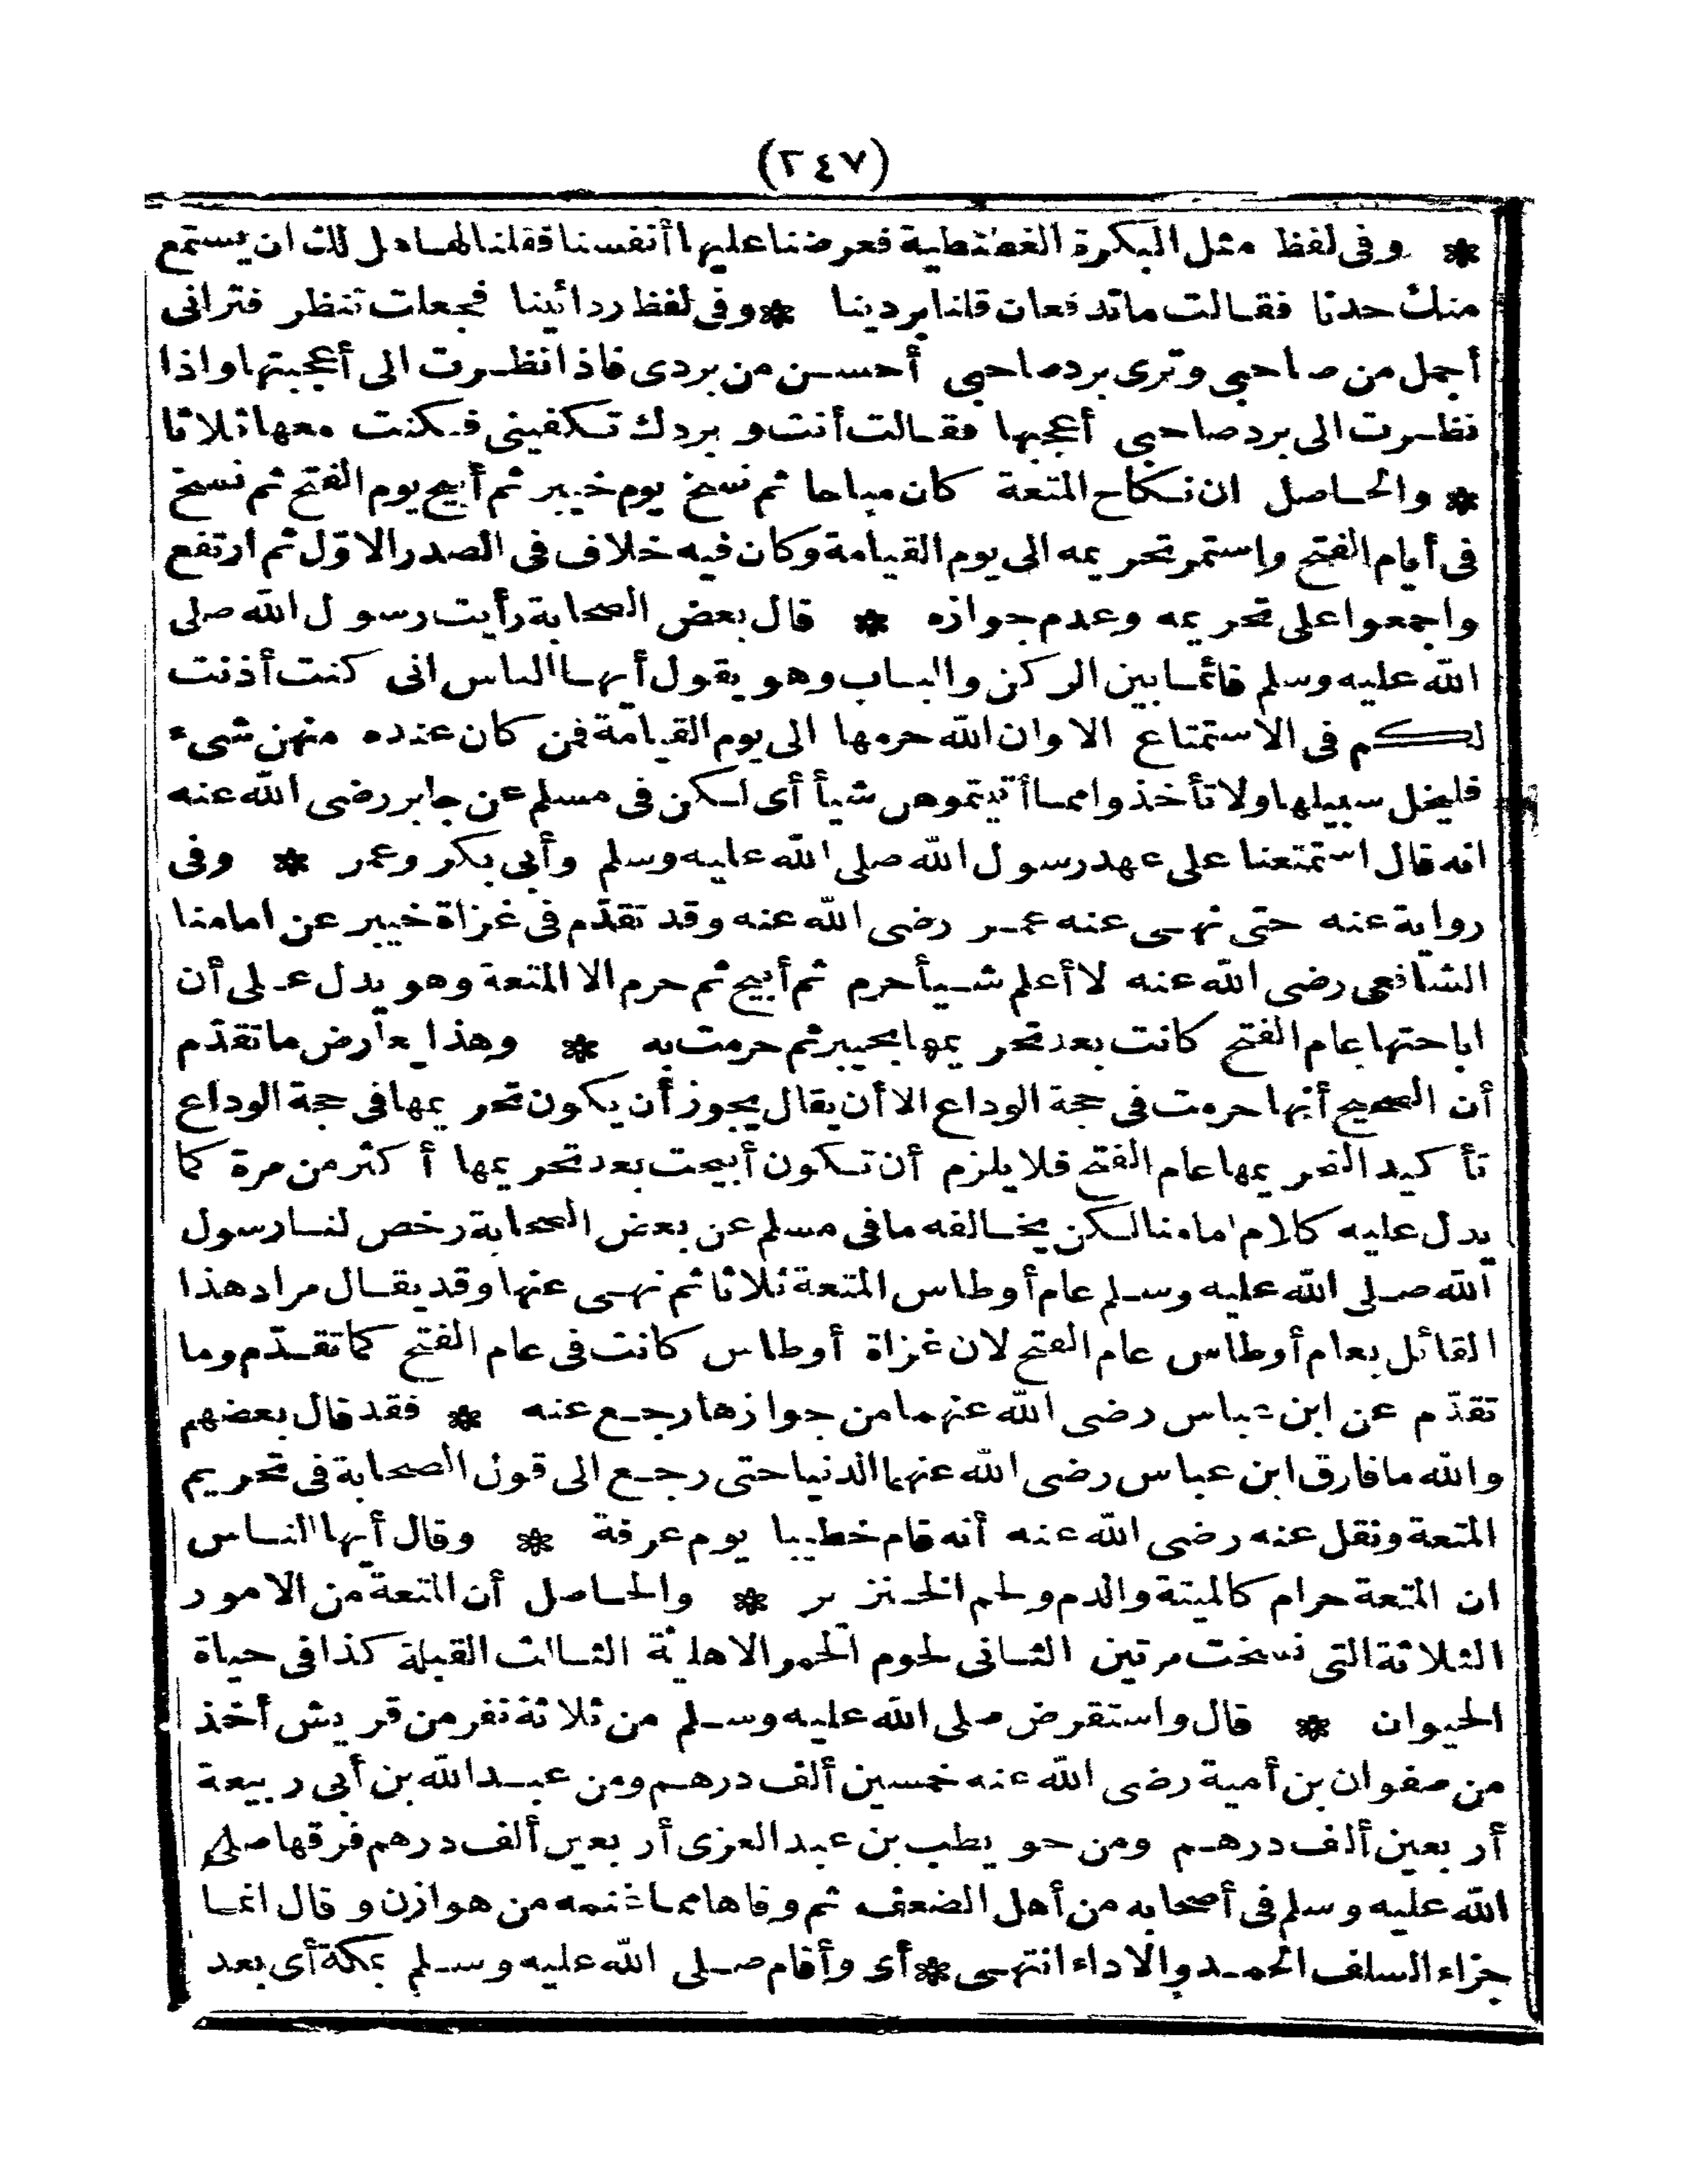 (٢٤٧)
* وفى لفظ مثل البكرة الغطنطية فعرضنا عليها أنفسنا فقلنا لها هل لك ان يستمتع
منك أحدنا فقالت ما تدفعان قلنا بردينا * وفى لفظ ردائينا فجعلت تنظر فترانى
أجمل من صاحبى وترى برد صاحبى أحسن من بردى فاذا نظرت الى أعجبتها واذا
نظرت الى برد صاحبى أعجبها فقالت أنت وبردك تكفينى فكنت معها ثلاثا
* والحاصل ان نكاح المتعة كان مباحا ثم نسخ يوم خيبر ثم أبيح يوم الفتح ثم نسخ
فى أيام الفتح واستمر تحريمه الى يوم القيامة وكان فيه خلاف فى الصدر الاوّل ثم ارتفع
واجمعوا على تحريمه وعدم جوازه * قال بعض الصحابة رأيت رسول الله صلى
الله عليه وسلم قائما بين الركن والباب وهو يقول أيها الناس انى كنت أذنت
لكم فى الاستمتاع الا وان الله حرمها الى يوم القيامة فمن كان عنده منهن شىء
فليخل سبيلها ولا تأخذوا مما أتيتموهن شيأ أى لكن فى مسلم عن جابر رضى الله عنه
انه قال استمتعنا على عهد رسول الله صلى الله عليه وسلم وأبى بكر وعمر * وفى
رواية عنه حتى نهى عنه عمر رضى الله عنه وقد تقدّم فى غزاة خيبر عن امامنا
الشافعى رضى الله عنه لا أعلم شيأ حرم ثم أبيح ثم حرم الا المتعة وهو يدل على أن
اباحتها عام الفتح كانت بعد تحريمها بخيبر ثم حرمت به * وهذا يعارض ما تقدّم
أن الصحيح أنها حرمت فى حجة الوداع الا أن يقال يجوز أن يكون تحريمها فى حجة الوداع
تأكيد التحريمها عام الفتح فلا يلزم أن تكون أبيحت بعد تحريمها أكثر من مرة كما
يدل عليه كلام امامنا لكن يخالفه ما فى مسلم عن بعض الصحابة رخص لنا رسول
الله صلى الله عليه وسلم عام أوطاس المتعة ثلاثا ثم نهى عنها وقد يقال مراد هذا
القائل بعام أوطاس عام الفتح لان غزاة أوطاس كانت فى عام الفتح كما تقدّم وما
تقدّم عن ابن عباس رضى الله عنهما من جوازها رجع عنه * فقد قال بعضهم
والله ما فارق ابن عباس رضى الله عنهما الدنيا حتى رجع الى قول الصحابة فى تحريم
المتعة ونقل عنه رضى الله عنه أنه قام خطيبا يوم عرفة * وقال أيها الناس
ان المتعة حرام كالميتة والدم ولحم الخنزير * والحاصل أن المتعة من الامور
الثلاثة التى نسخت مرتين الثانى لحوم الحمر الاهلية الثالث القبلة كذا فى حياة
الحيوان * قال واستقرض صلى الله عليه وسلم من ثلاثة نفر من قريش أخذ
من صفوان بن أمية رضى الله عنه خمسين ألف درهم ومن عبد الله بن أبى ربيعة
أربعين ألف درهم ومن حويطب بن عبد العزى أربعين ألف درهم فرقها صلى
الله عليه وسلم فى أصحابه من أهل الضعف ثم وفاها مما غنمه من هوازن وقال انما
جزاء السلف الحمد والاداء انتهى * أى وأقام صلى الله عليه وسلم بمكة أى بعد